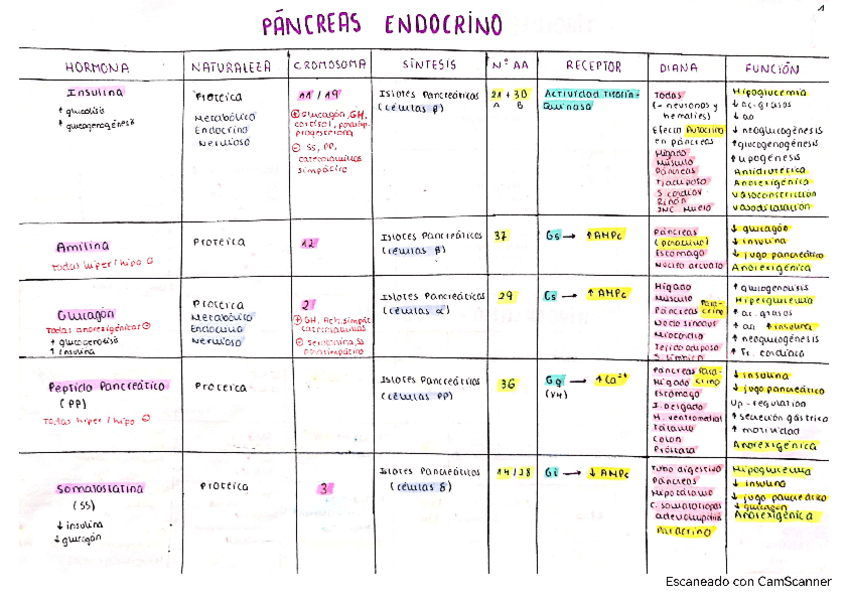 1
PÁNCREAS ENDOCRINO
HORMONA NATURALEZA CROMOSOMA SÍNTESIS Nº AA RECEPTOR DIANA FUNCIÓN
Insulina
↑ glucolisis
↑ glucogenogénesis
Proteica
Metabólico
Endocrino
Nervioso
11 / 19
⊕ Glucagón, GH,
cortisol,
progesterona
⊖ SS, PP,
catecolaminas
simpático
Islotes Pancreáticos
(células β)
21 + 30
A B
Actividad Tirosin-
quinasa
Todas
(- neuronas y
hematíes)
Efecto Autocrino
en páncreas
Hígado
Músculo
Páncreas
T.adiposo
S. cardiov
Riñón
Hipoglucemia
↓ ac. grasos
↓ aa
↓ neoglucogénesis
↑ glucogenogénesis
↑ lipogénesis
Antidiurética
Anorexigénica
Vasoconstricción
Vasodilatación
Amilina
Todas hiper / hipo ⊖
Proteica
12
Islotes Pancreáticos
(células β)
37
Gs → ↑ AMPc
Páncreas
(paracrino)
Estómago
Núcleo arcuato
↓ glucagón
↓ insulina
↓ jugo pancreático
Anorexigénica
Glucagón
Todas anorexigénicas ⊖
↑ insulina
Proteica
Metabólico
Endocrino
Nervioso
2
⊕ GH, Ach, simpát
catecolaminas
⊖ Secretina, SS
parasimpático
Islotes Pancreáticos
(células α)
29
Gs → ↑ AMPc
Hígado
Músculo
Páncreas Paracrino
Nodo sinusal
Miocardio
Tejido adiposo
S. límbico
↑ glucogenolisis
Hiperglucemia
↑ ac. grasos
↑ aa ↑ insulina
↑ neoglucogénesis
↑ Fr. cardíaca
Peptido Pancreático
(PP)
Todas hiper / hipo ⊖
Proteica
Islotes Pancreáticos
(células PP)
36
Gq → ↑ Ca²⁺
(Y4)
Páncreas Para-
Hígado crino
Estómago
I. Delgado
H. ventromedial
Tálamo
Colon
Próstata
↓ insulina
↓ jugo pancreático
Up - regulation
↑ secreción gástrica
↑ motilidad
Anorexigénica
Somatostatina
(SS)
↓ insulina
↓ glucagón
Proteica
3
Islotes Pancreáticos
(células δ)
14 / 28
Gi → ↓ AMPc
Tubo digestivo
Páncreas
Hipotálamo
C. somatotropas
adenohipófisis
Paracrino
Hipoglucemia
↓ insulina
↓ jugo pancreático
↓ glucagón
Anorexigénica
Escaneado con CamScanner